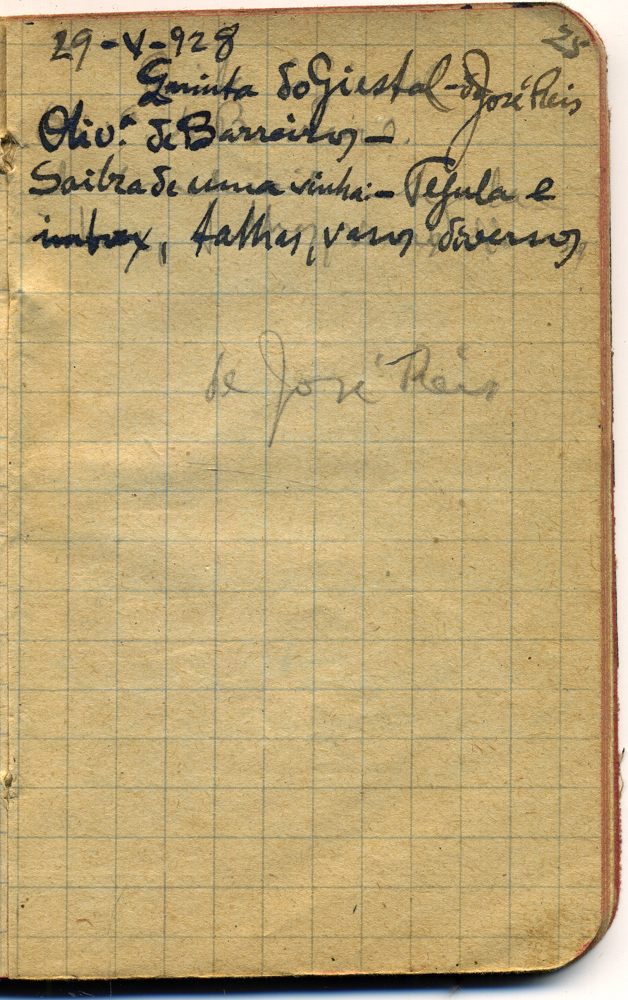 25
29-V-928
Quinta do Giestal - de José Reis
Oliv.ª de Barreiros -
Saibra de uma vinha: - Tegula e
imbrex, talhas, vasos diversos
de José Reis